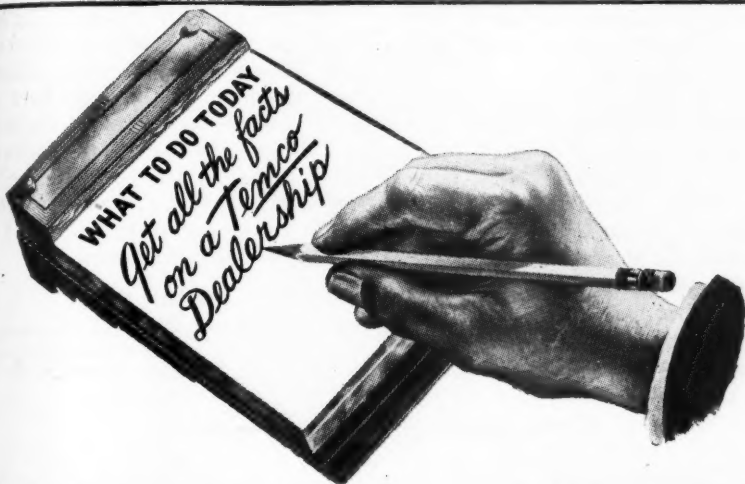 WHAT TO DO TODAY
Get all the facts
on a Temco
Dealership